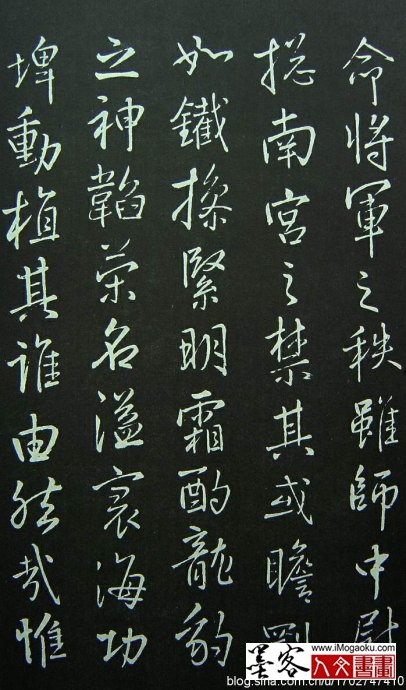 命將軍之秩雖師中尉
揔南宮之禁其或瞻
如鐵操緊明霜酌龍豹
之神韜榮名溢寰海功
埤動植其誰由然哉惟
墨客
www.iMogaoku.com
人文書畫
blog.sina.com.cn/u/1702747410